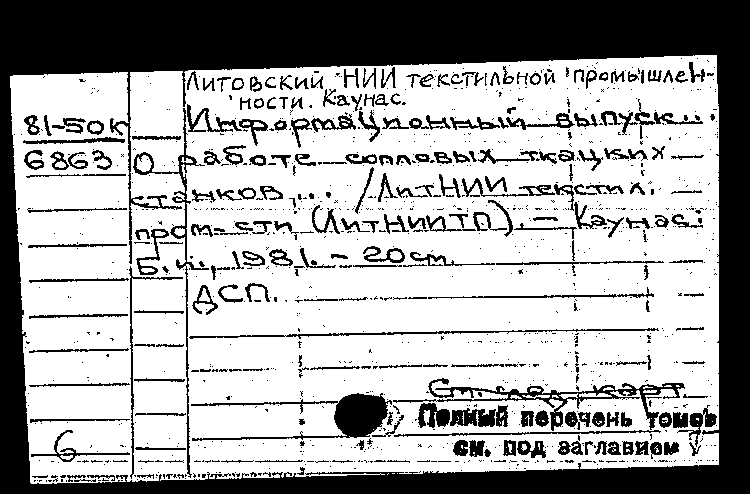 Литовский НИИ текстильной промышлен-
ности. Каунас.
81-50к Информационный выпуск...
6863 О работе сопловых ткацких
станков... /ЛитНИИ текстил.
пром-сти (ЛитНИИТП). — Каунас:
Б.и., 1981. – 20см.
ДСП.
См. след. карт.
Полный перечень томов
см. под заглавием
6